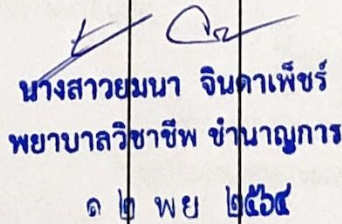 นางสาวยมนา จินดาเพ็ชร์
พยาบาลวิชาชีพ ชำนาญการ
๑๒ พย ๒๕๖๔